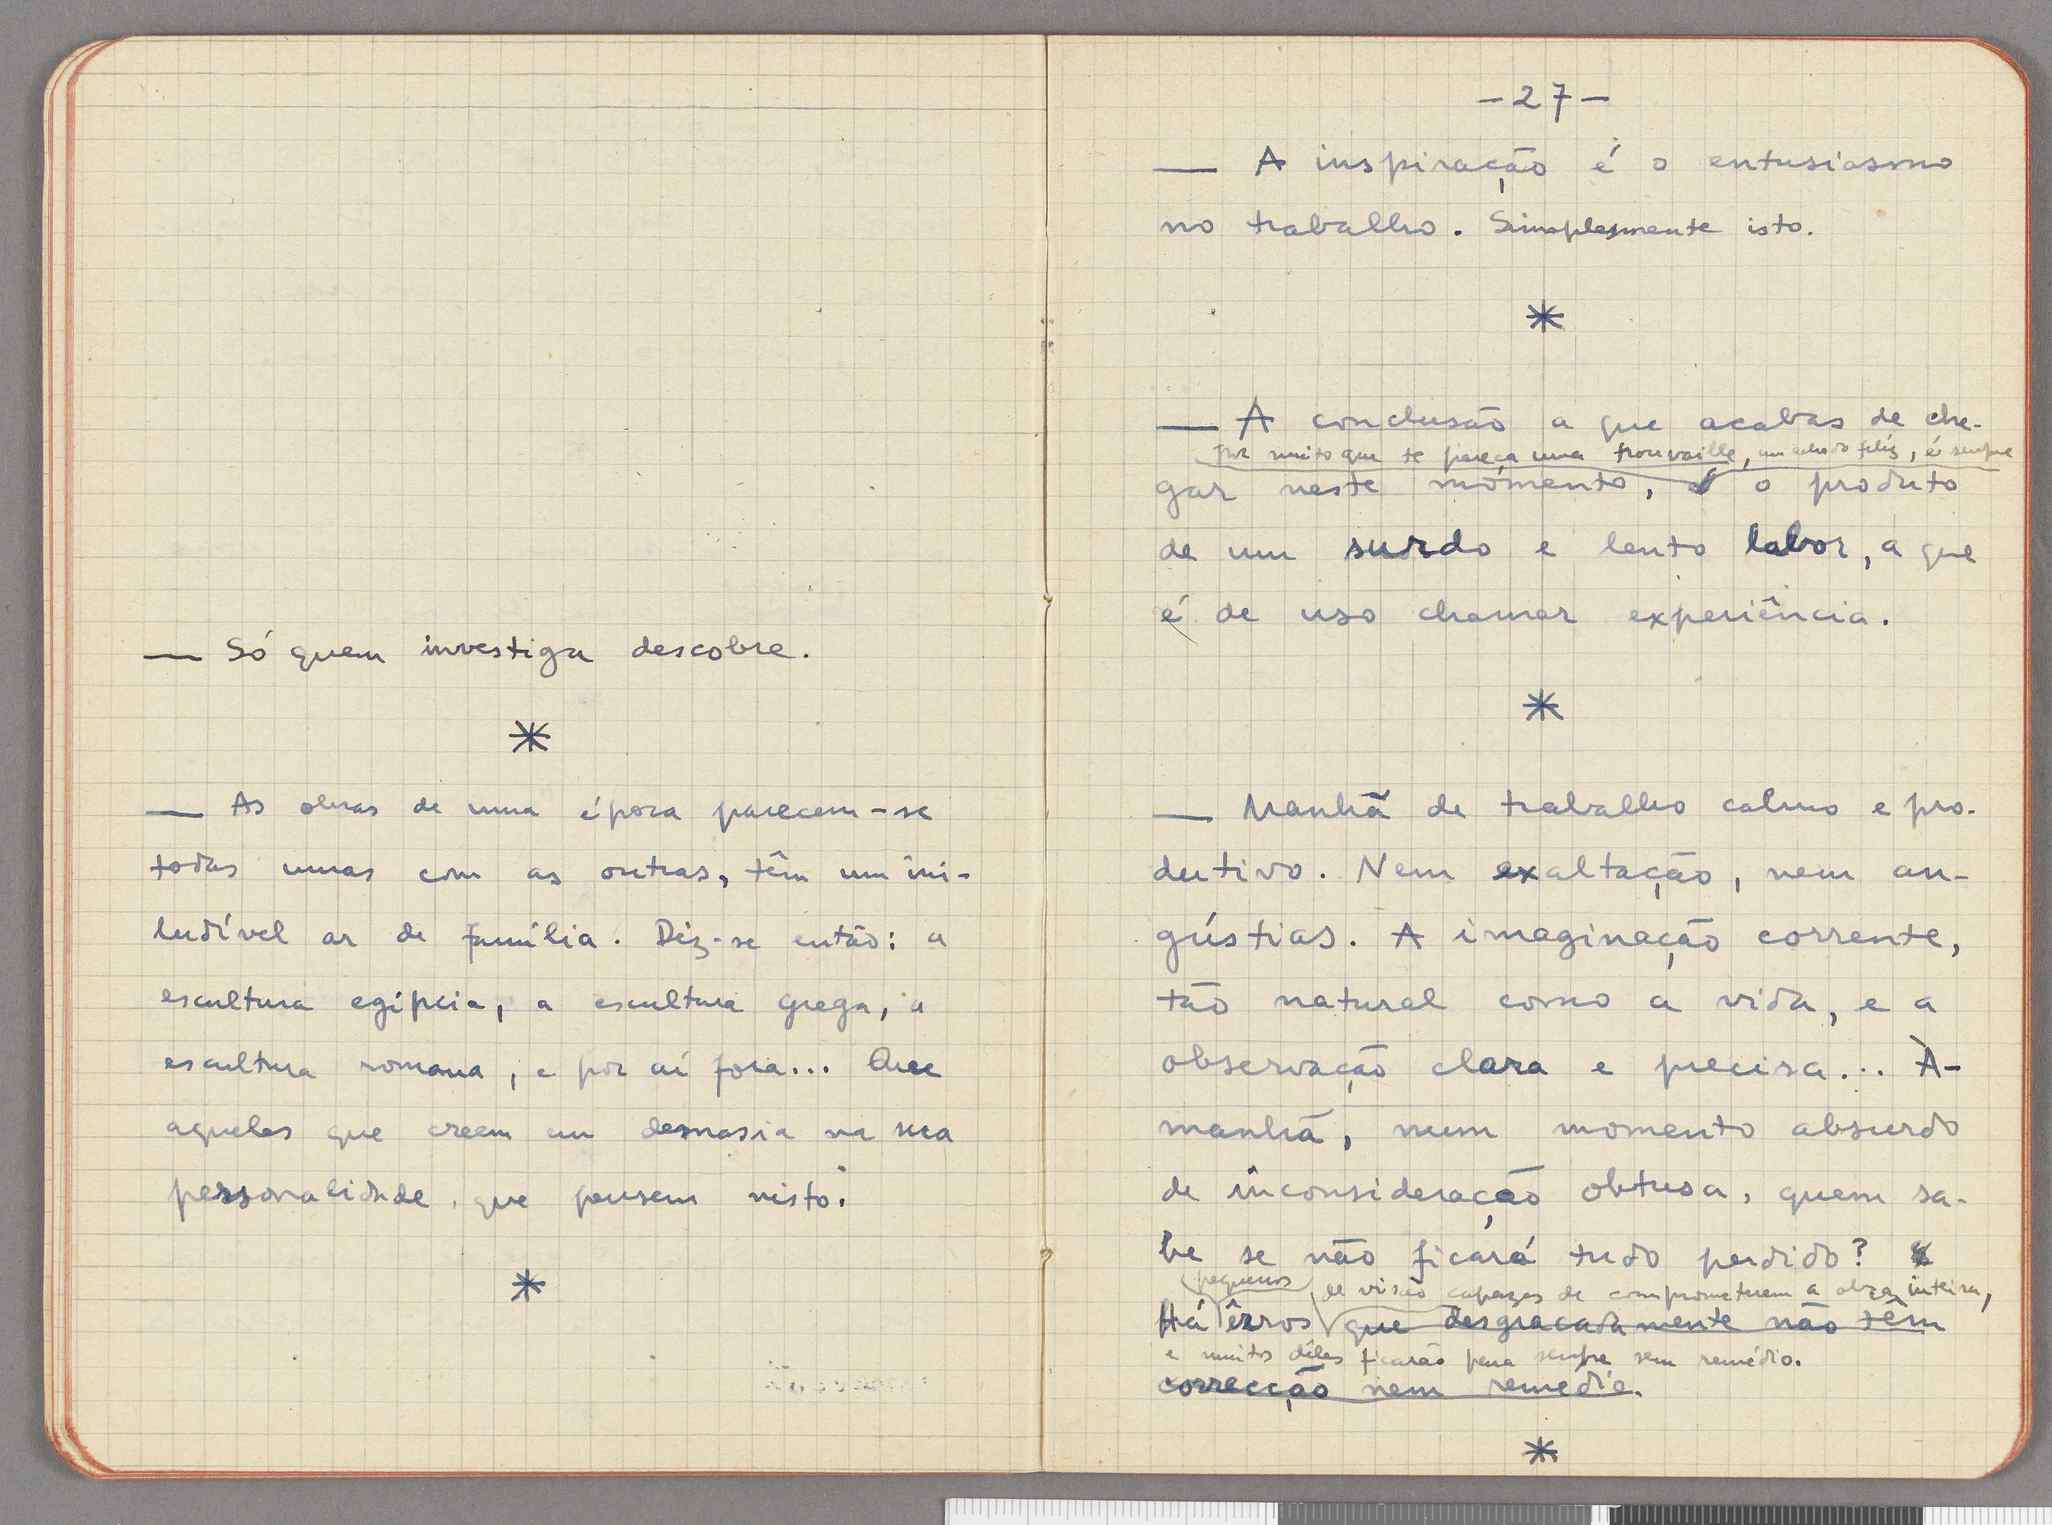 — Só quem investiga descobre.
*
— As obras de uma época parecem-se
todas umas com as outras, têm um ini-
ludível ar de família. Diz-se então: a
escultura egípcia, a escultura grega, a
escultura romana, e por aí fora... Que
aqueles que creem em demasia na sua
personalidade, que pensem nisto.
*
—27—
— A inspiração é o entusiasmo
no trabalho. Simplesmente isto.
*
— A conclusão a que acabas de che-
por muito que te pareça uma trouvaille, um achado feliz, é sempre
gar neste momento, é o produto
de um surdo e lento labor, a que
é de uso chamar experiência.
*
— Manhã de trabalho calmo e pro-
dutivo. Nem exaltação, nem an-
gústias. A imaginação corrente,
tão natural como a vida, e a
observação clara e precisa... À-
manhã, num momento absurdo
de inconsideração obtusa, quem sa-
be se não ficará tudo perdido?
pequenos de visão capazes de comprometerem a obra inteira,
Há êrros que desgraçadamente não têm
e muitos dêles ficarão para sempre sem remédio.
correcção nem remédio.
*